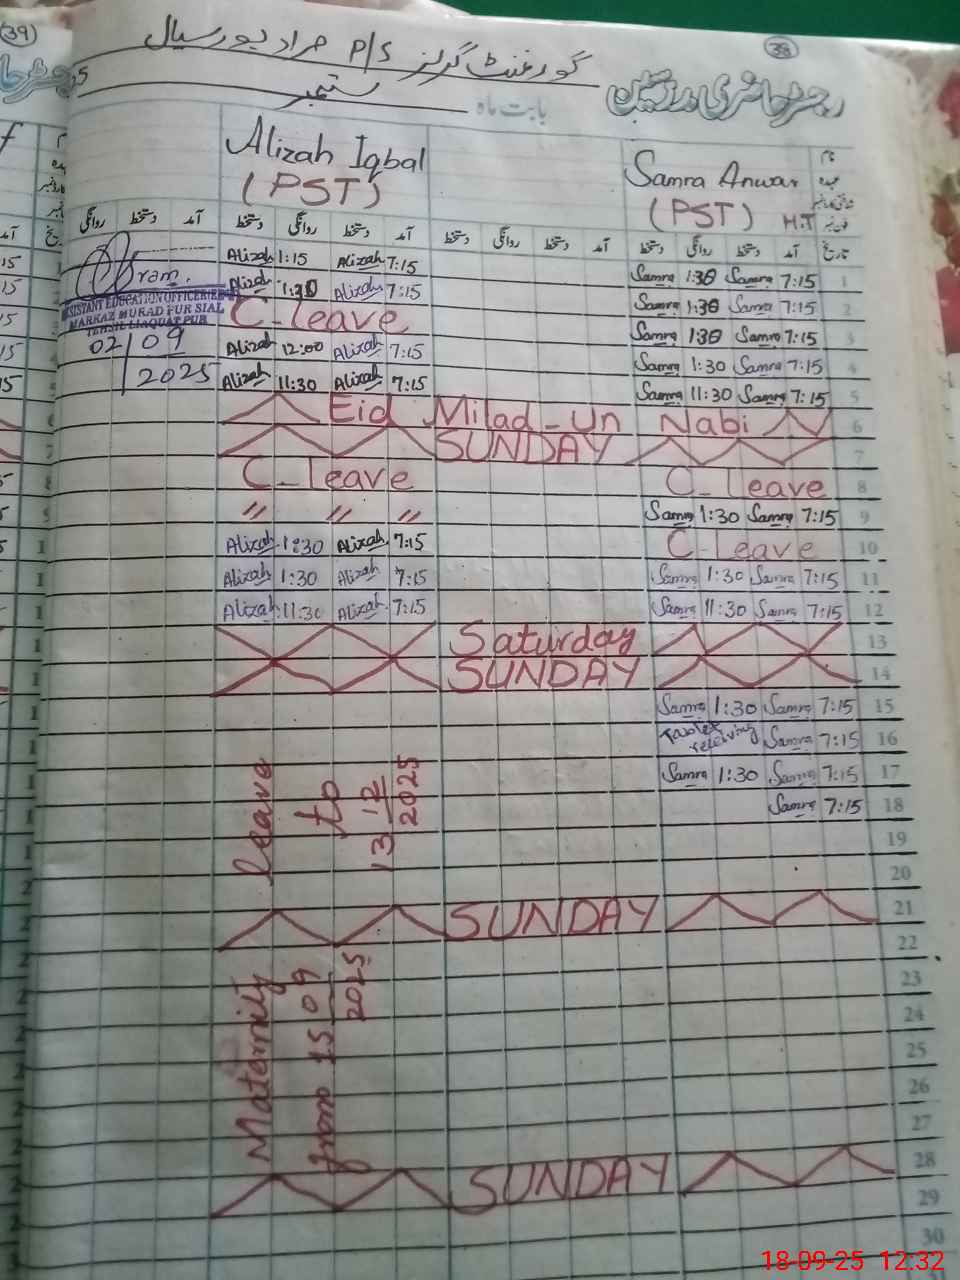 (39)
(38)
گورنمنٹ گرلز P/S مراد پور سیال
رجسٹر حاضری مدرسین
بابت ماہ ستمبر
Alizah Iqbal
(PST)
Samra Anwar
(PST) H.T
نام
عہدہ
تاریخ آمد دستخط روانگی دستخط آمد دستخط روانگی دستخط آمد دستخط روانگی دستخط آمد دستخط روانگی
Alizah 1:15 Alizah 7:15 Samra 1:30 Samra 7:15 1
Alizah 1:30 Alizah 7:15 Samra 1:30 Samra 7:15 2
C-leave Samra 1:30 Samra 7:15 3
Alizah 12:00 Alizah 7:15 Samra 1:30 Samra 7:15 4
Alizah 11:30 Alizah 7:15 Samra 11:30 Samra 7:15 5
ASSISTANT EDUCATION OFFICER
MARKAZ MURAD PUR SIAL
TEHSIL LIAQUAT PUR
02/09
2025
Eid Milad-Un Nabi 6
SUNDAY 7
C-leave C-leave 8
" " " Samra 1:30 Samra 7:15 9
Alizah 1:30 Alizah 7:15 C-Leave 10
Alizah 1:30 Alizah 7:15 Samra 1:30 Samra 7:15 11
Alizah 11:30 Alizah 7:15 Samra 11:30 Samra 7:15 12
Saturday 13
SUNDAY 14
Samra 1:30 Samra 7:15 15
Tablet receiving Samra 7:15 16
Samra 1:30 Samra 7:15 17
Samra 7:15 18
19
20
SUNDAY 21
22
23
24
25
26
27
SUNDAY 28
29
30
Maternity leave
from 15 09 2025 to
13 12 2025
18-09-25 12:32